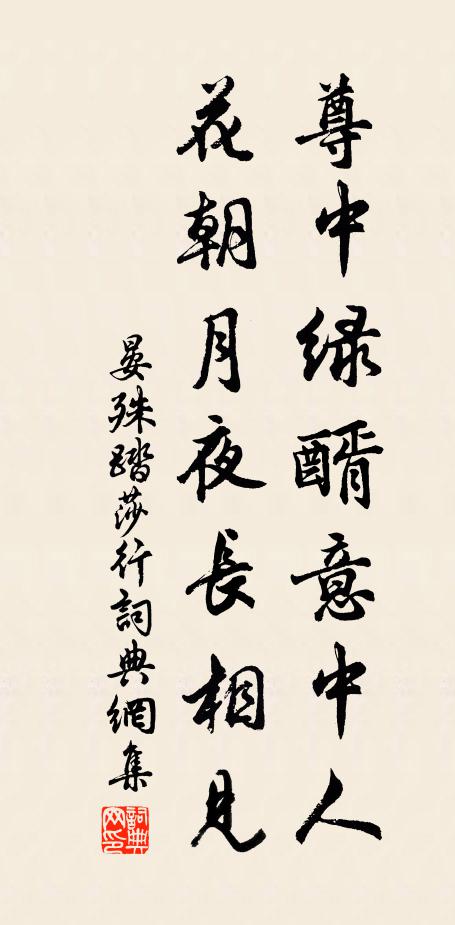 尊中綠醑意中人
花朝月夜長相見
晏殊踏莎行詞典網集
詞典网印